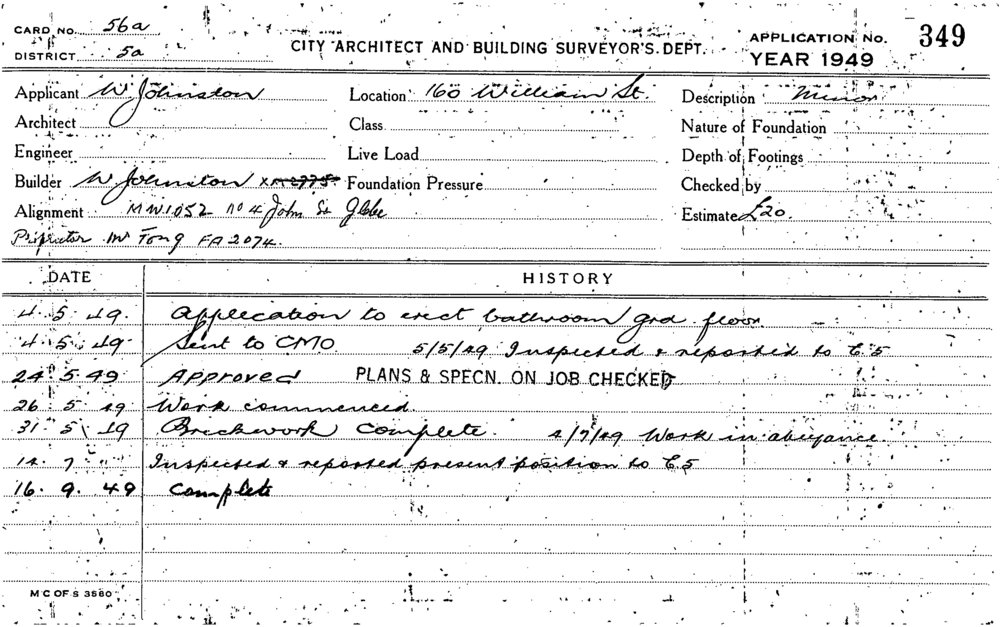 CARD NO. 56a
DISTRICT 5a
CITY ARCHITECT AND BUILDING SURVEYOR'S. DEPT.
APPLICATION No. 349
YEAR 1949
Applicant W Johnston Location 160 William St. Description Minor
Architect Class Nature of Foundation
Engineer Live Load Depth of Footings
Builder W Johnston Foundation Pressure Checked by
Alignment MW1052 no 4 John St Glebe Estimate £20.
Proprietor Mr Tong FA 2074.
DATE HISTORY
4. 5. 49. Application to erect bathroom grd. floor
4. 5. 49. Sent to CMO. 5/5/49 Inspected & reported to C5
24. 5. 49 Approved PLANS & SPECN. ON JOB CHECKED
26. 5. 49 Work commenced.
31 5 49 Brickwork complete. 4/7/49 Work in abeyance.
14. 7 Inspected & reported present position to C5
16. 9. 49 Complete
M C OF S 3580